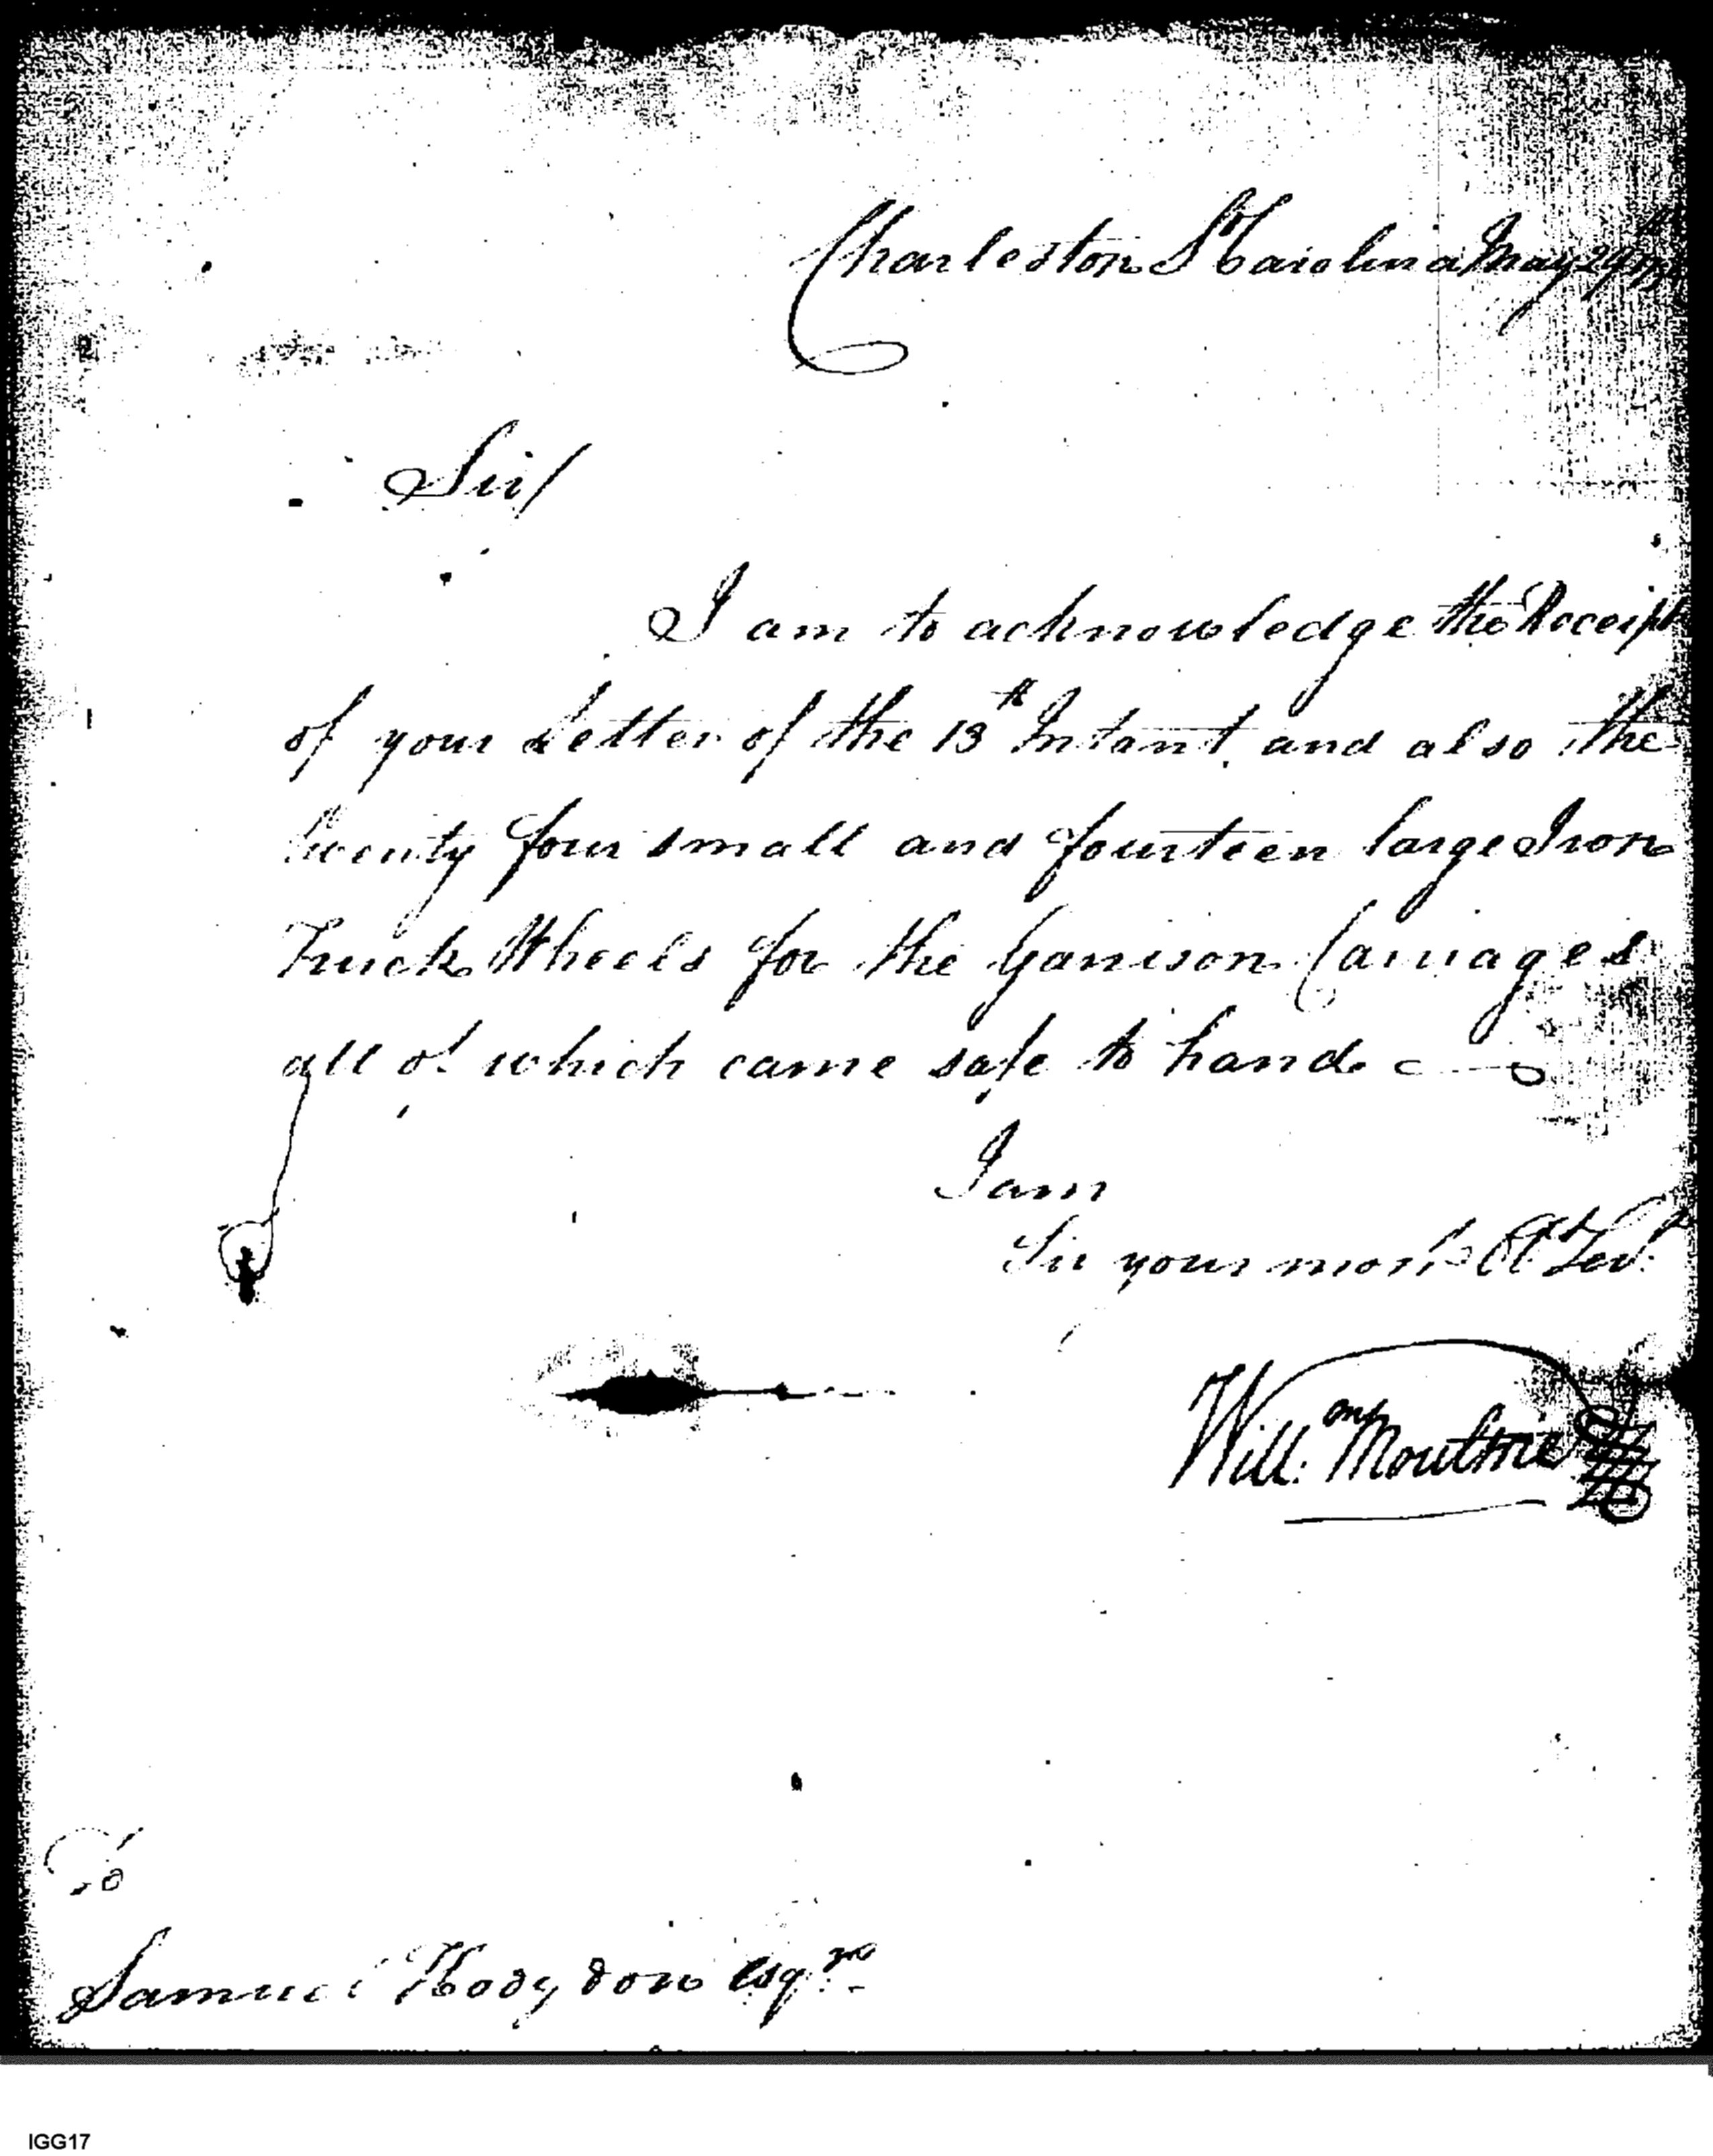 Charleston S Carolina May 29
Sir/
I am to acknowledge the Receipt
of your Letter of the 13th Intant. and also the
twenty four small and fourteen large Iron
Truck Wheels for the Garrison Carriages
all of which came safe to hand
I am
Sir your most Ob Ser.
Will.m Moultrie
To
Samuel Hodgdon Esq.re
IGG17